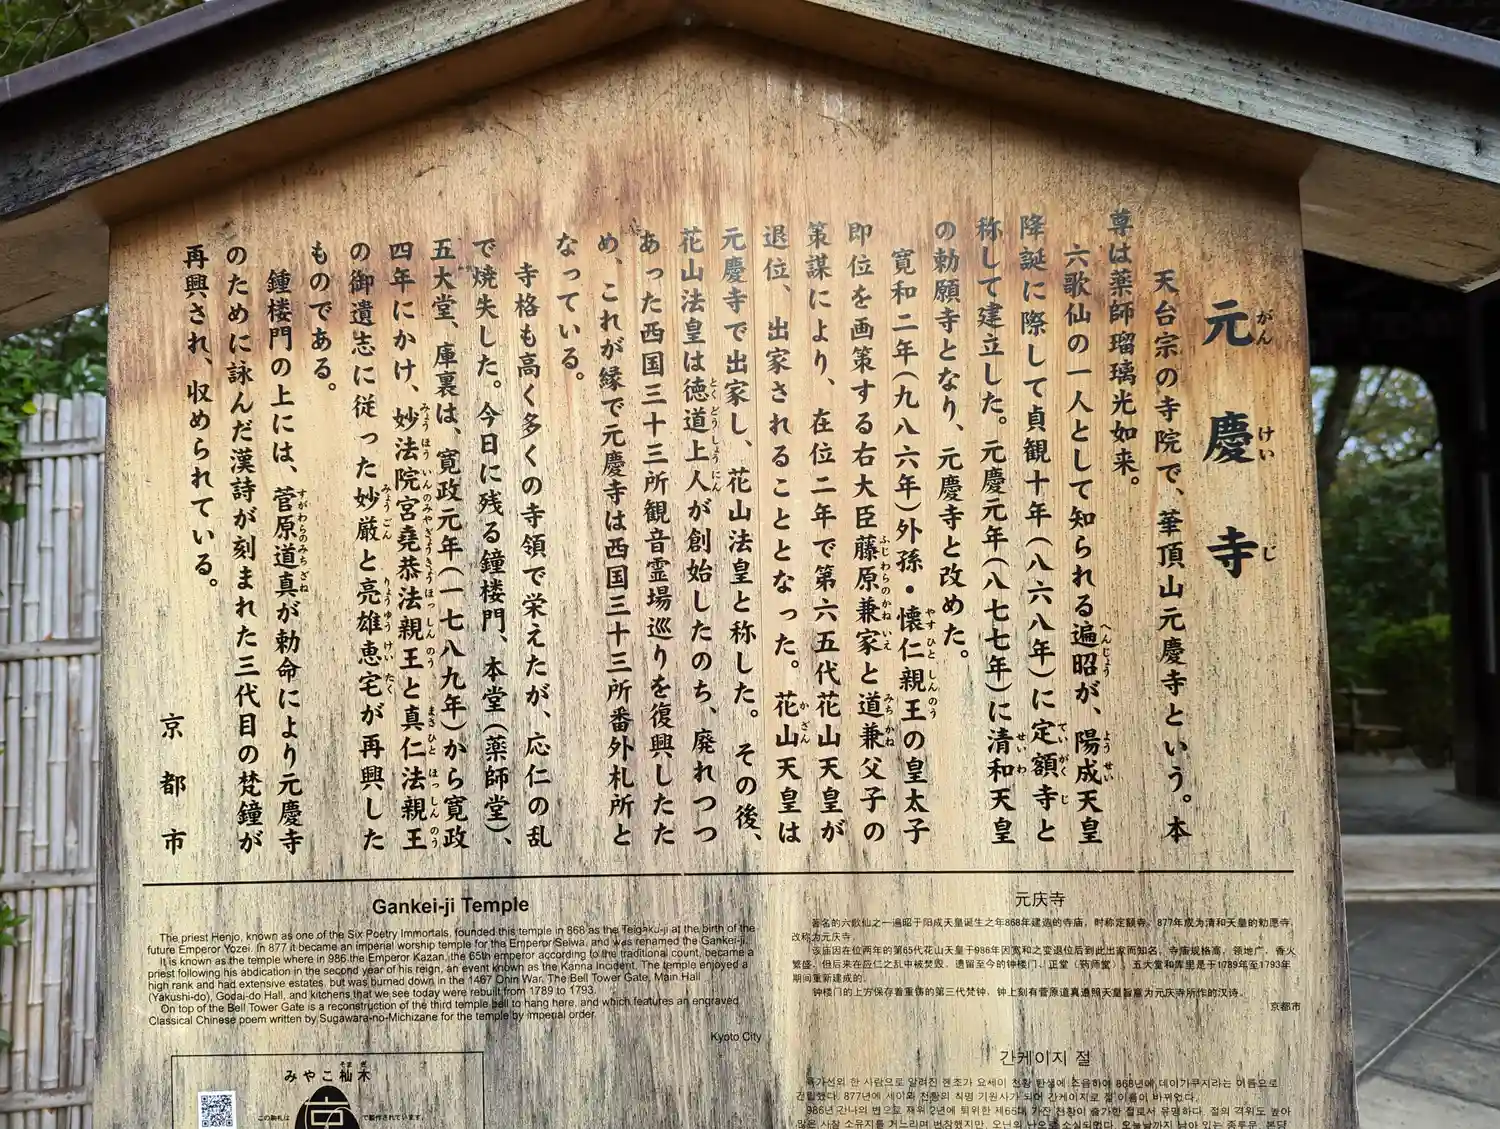 元慶寺
がんけいじ
天台宗の寺院で、華頂山元慶寺という。本
尊は薬師瑠璃光如来。
六歌仙の一人として知られる遍昭が、陽成天皇
へんじょう
ようぜい
降誕に際して貞観十年(八六八年)に定額寺と
ていがくじ
称して建立した。元慶元年(八七七年)に清和天皇
せいわ
の勅願寺となり、元慶寺と改めた。
寛和二年(九八六年)外孫・懐仁親王の皇太子
やすひとしんのう
即位を画策する右大臣藤原兼家と道兼父子の
ふじわらのかねいえ
みちかね
策謀により、在位二年で第六五代花山天皇が
退位、出家されることとなった。花山天皇は
かざん
元慶寺で出家し、花山法皇と称した。その後、
花山法皇は徳道上人が創始したのち、廃れつつ
とくどうしょうにん
あった西国三十三所観音霊場巡りを復興したた
め、これが縁で元慶寺は西国三十三所番外札所と
なっている。
寺格も高く多くの寺領で栄えたが、応仁の乱
で焼失した。今日に残る鐘楼門、本堂(薬師堂)、
五大堂、庫裏は、寛政元年(一七八九年)から寛政
四年にかけ、妙法院宮堯恭法親王と真仁法親王
みょうほういんのみやぎょうきょうほっしんのう
まさひとほっしんのう
の御遺志に従った妙厳と亮雄恵宅が再興した
みょうごん
りょうゆうけいたく
ものである。
鐘楼門の上には、菅原道真が勅命により元慶寺
すがわらのみちざね
のために詠んだ漢詩が刻まれた三代目の梵鐘が
再興され、収められている。
京都市
Gankei-ji Temple
The priest Henjo, known as one of the Six Poetry Immortals, founded this temple in 868 as the Teigaku-ji at the birth of the
future Emperor Yozei. In 877 it became an imperial worship temple for the Emperor Seiwa, and was renamed the Gankei-ji.
It is known as the temple where in 986 the Emperor Kazan, the 65th emperor according to the traditional count, became a
priest following his abdication in the second year of his reign, an event known as the Kanna Incident. The temple enjoyed a
high rank and had extensive estates, but was burned down in the 1467 Onin War. The Bell Tower Gate, Main Hall
(Yakushi-do), Godai-do Hall, and kitchens that we see today were rebuilt from 1789 to 1793.
On top of the Bell Tower Gate is a reconstruction of the third temple bell to hang here, and which features an engraved
Classical Chinese poem written by Sugawara-no-Michizane for the temple by imperial order.
Kyoto City
元庆寺
著名的六歌仙之一遍昭于阳成天皇诞生之年868年建造的寺庙，时称定额寺。877年成为清和天皇的勅愿寺，
改称为元庆寺。
该庙因在位两年的第65代花山天皇于986年因宽和之变退位后到此出家而知名。寺庙规格高，领地广，香火
繁盛，但后来在应仁之乱中被焚毁。遗留至今的钟楼门、正堂（药师堂）、五大堂和库里是于1789年至1793年
期间重新建成的。
钟楼门的上方保存着重铸的第三代梵钟，钟上刻有菅原道真遵照天皇旨意为元庆寺所作的汉诗。
京都市
간케이지 절
육가선의 한 사람으로 알려진 헨조가 요제이 천황 탄생에 즈음하여 868년에 데이가쿠지라는 이름으로
건립했다. 877년에 세이와 천황의 칙명 기원사가 되어 간케이지로 절 이름이 바뀌었다.
986년 간나의 변으로 재위 2년에 퇴위한 제65대 가잔 천황이 출가한 절로서 유명하다. 절의 격위도 높아
많은 사찰 소유지를 거느리며 번창했지만, 오닌의 난으로 소실되었다. 오늘날까지 남아 있는 종루문, 본당
みやこ杣木
そまぎ
この駒札は
で製作されています。